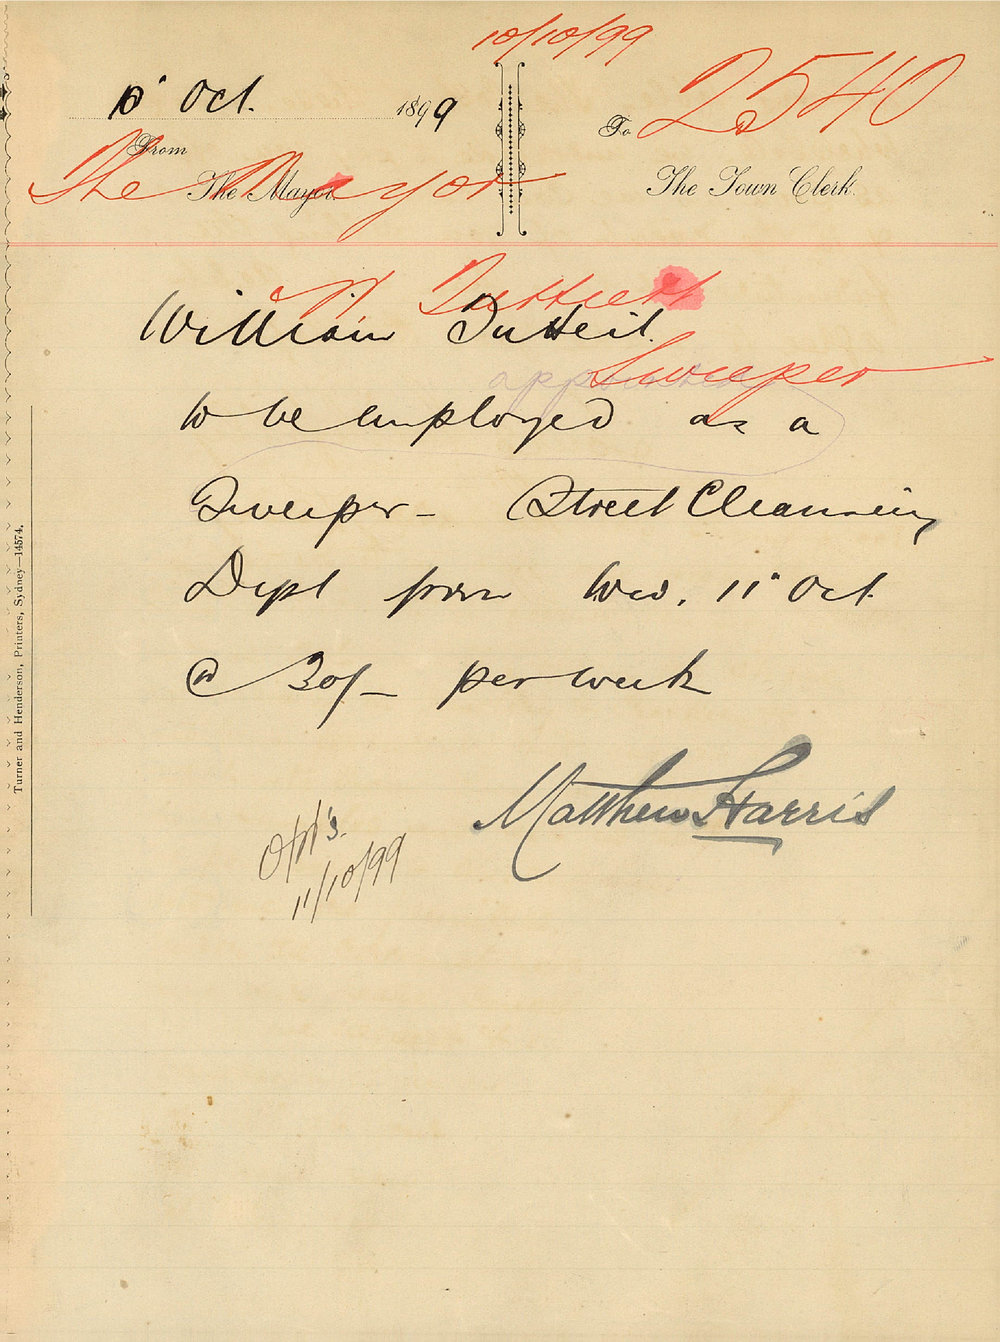 10/10/99
10 Oct. 1899
To 2540
From
The Mayor
The Mayor
The Town Clerk
W
William Dutteil.
Sweeper
to be employed as a
Sweeper - Street Cleansing
Dept from Wed. 11 Oct
@ 30/- per week
Matthew Harris
11/10/99
Turner and Henderson, Printers, Sydney—14574.